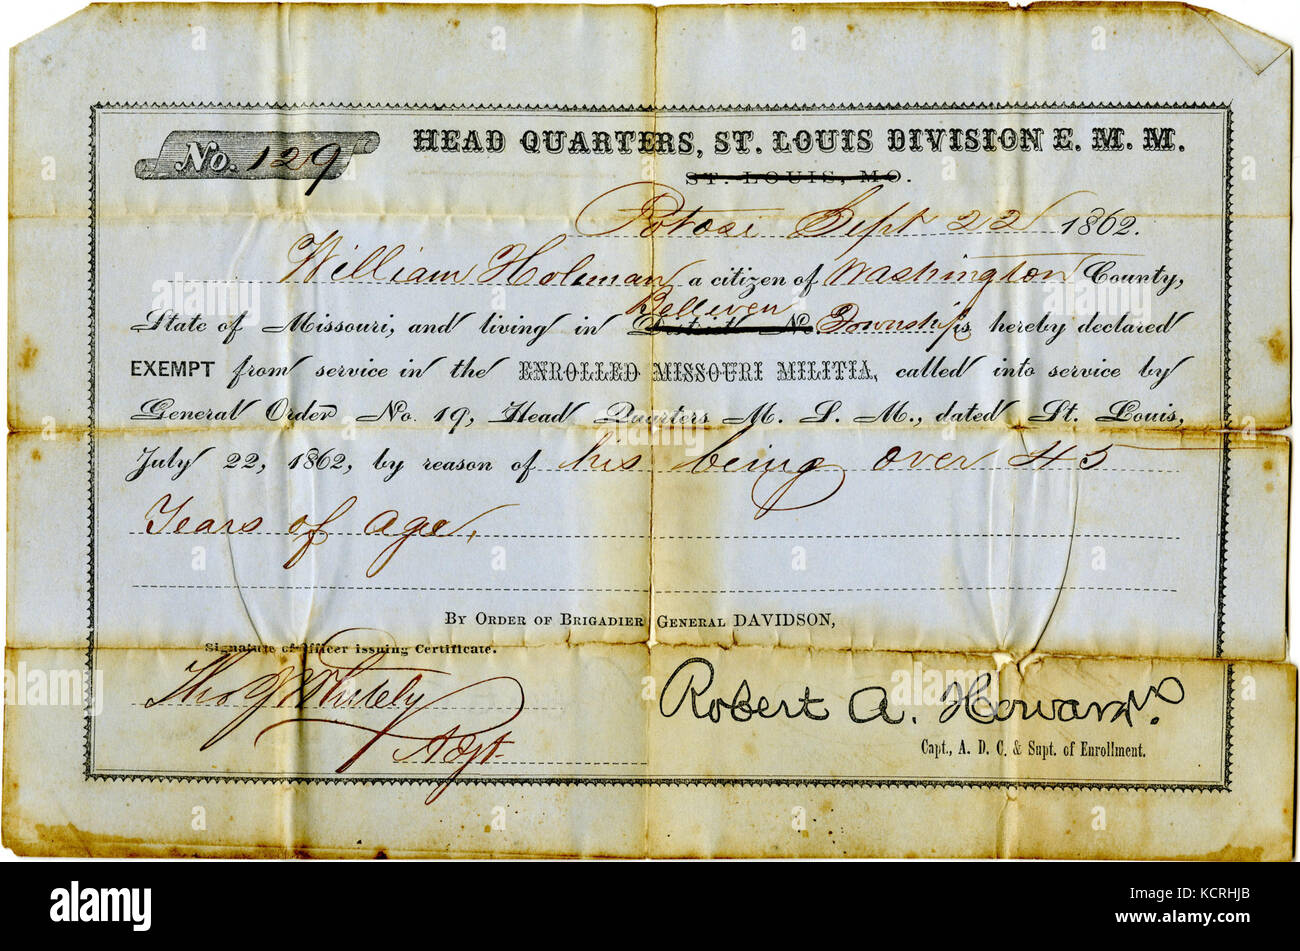 No. 129
HEAD QUARTERS, ST. LOUIS DIVISION E. M. M.
ST. LOUIS, MO.
Potosi Sept 22 1862.
William Holman a citizen of Washington County,
Belleven
State of Missouri, and living in District No. Township is hereby declared
EXEMPT from service in the ENROLLED MISSOURI MILITIA, called into service by
General Order No. 19, Head Quarters M. S. M., dated St. Louis,
July 22, 1862, by reason of his being over 45
Years of age.
BY ORDER OF BRIGADIER GENERAL DAVIDSON,
Signature of Officer issuing Certificate.
Tho J Whitely
Robert A. Howard
Capt., A. D. C. & Supt. of Enrollment.
alamy
a
Image ID: KCRHJB
www.alamy.com